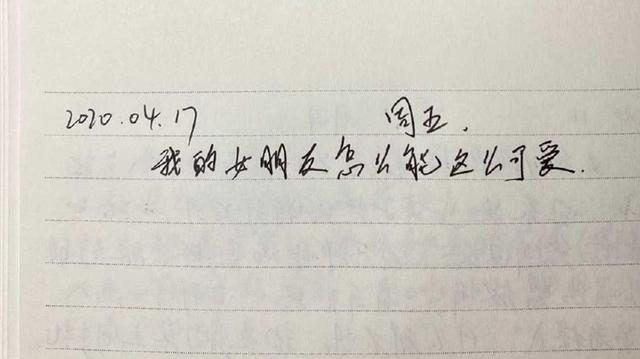 2020.04.17 周五.
我的女朋友怎么能这么可爱.